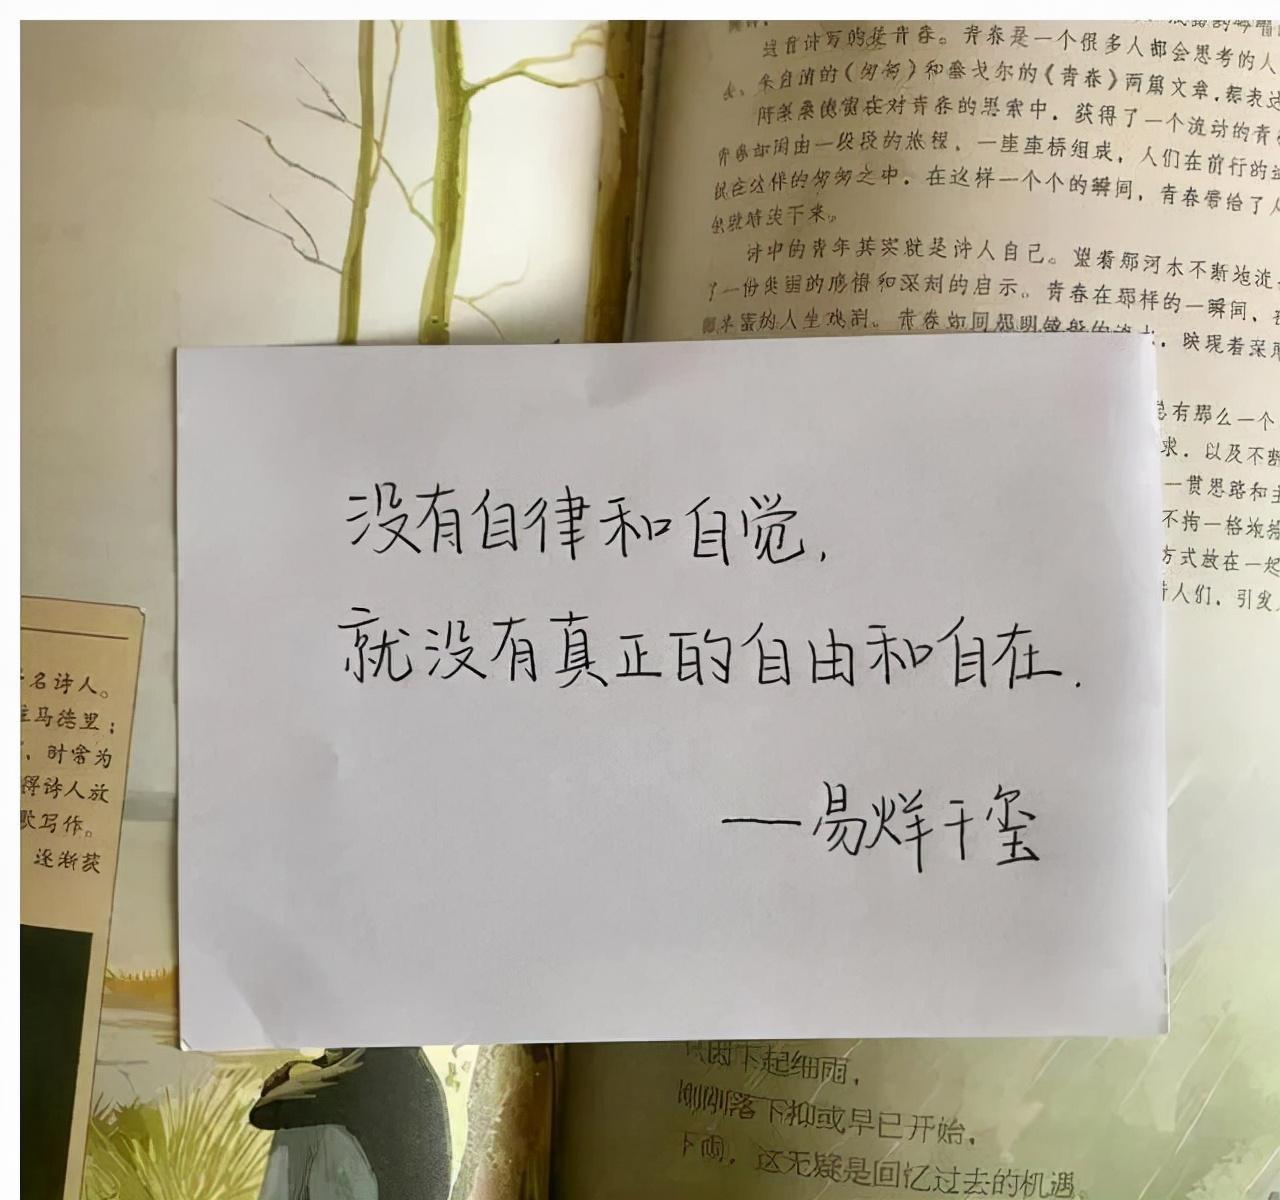 青春。青春是一个很多人都会思考的人
朱自清的《匆匆》和泰戈尔的《青春》两篇文章，都表达
在对青春的思索中，获得了一个流动的青
由一段段的旅程，一座座桥组成，人们在前行的
匆匆之中。在这样一个个的瞬间，青春带给了人
诗中的青年其实就是诗人自己。望着那河水不断地流
了一份 和深刻的启示。青春在那样的一瞬间，
的人生戏剧。青春如同那
映现着深
总有那么一个
求，以及不断
一贯思路和主
不拘一格地
方式放在一起
人们，引发
没有自律和自觉，
就没有真正的自由和自在.
——易烊千玺
名诗人。
马德里；
，时常为
得诗人放
歌写作。
逐渐获
下起细雨，
刚刚落下抑或早已开始。
下雨，这无疑是回忆过去的机遇